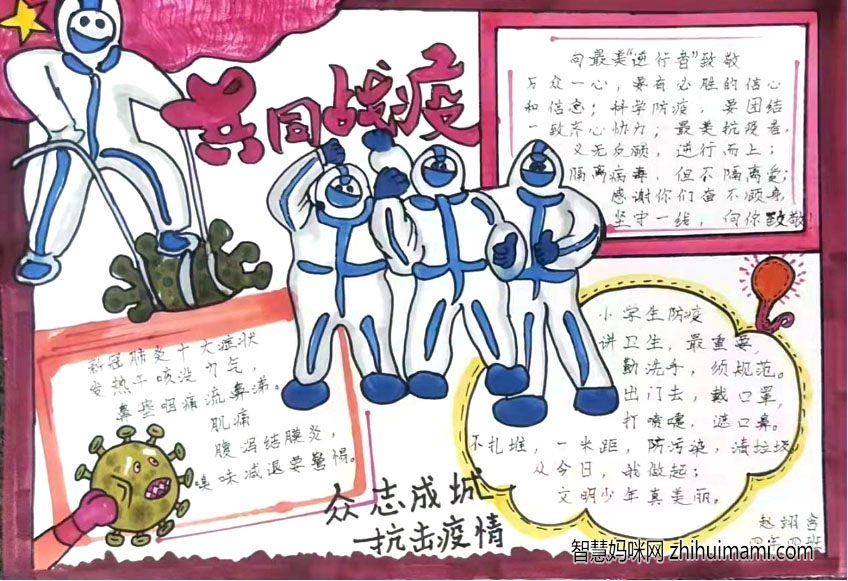 共同战疫
向最美“逆行者”致敬
万众一心，要有必胜的信心
和信念；科学防疫，要团结
一致齐心协力；最美抗疫者，
义无反顾，逆行而上；
隔离病毒，但不隔离爱；
感谢你们奋不顾身，
坚守一线，向你致敬！
新冠肺炎十大症状
发热干咳没力气，
鼻塞咽痛流鼻涕。
肌痛
腹泻结膜炎，
嗅味减退要警惕。
小学生防疫
讲卫生，最重要，
勤洗手，须规范。
出门去，戴口罩，
打喷嚏，遮口鼻。
不扎堆，一米距，防污染，清垃圾
从今日，我做起；
文明少年真美丽。
众志成城
抗击疫情
赵翊含
四年四班
智慧妈咪网 zhihuimami.com